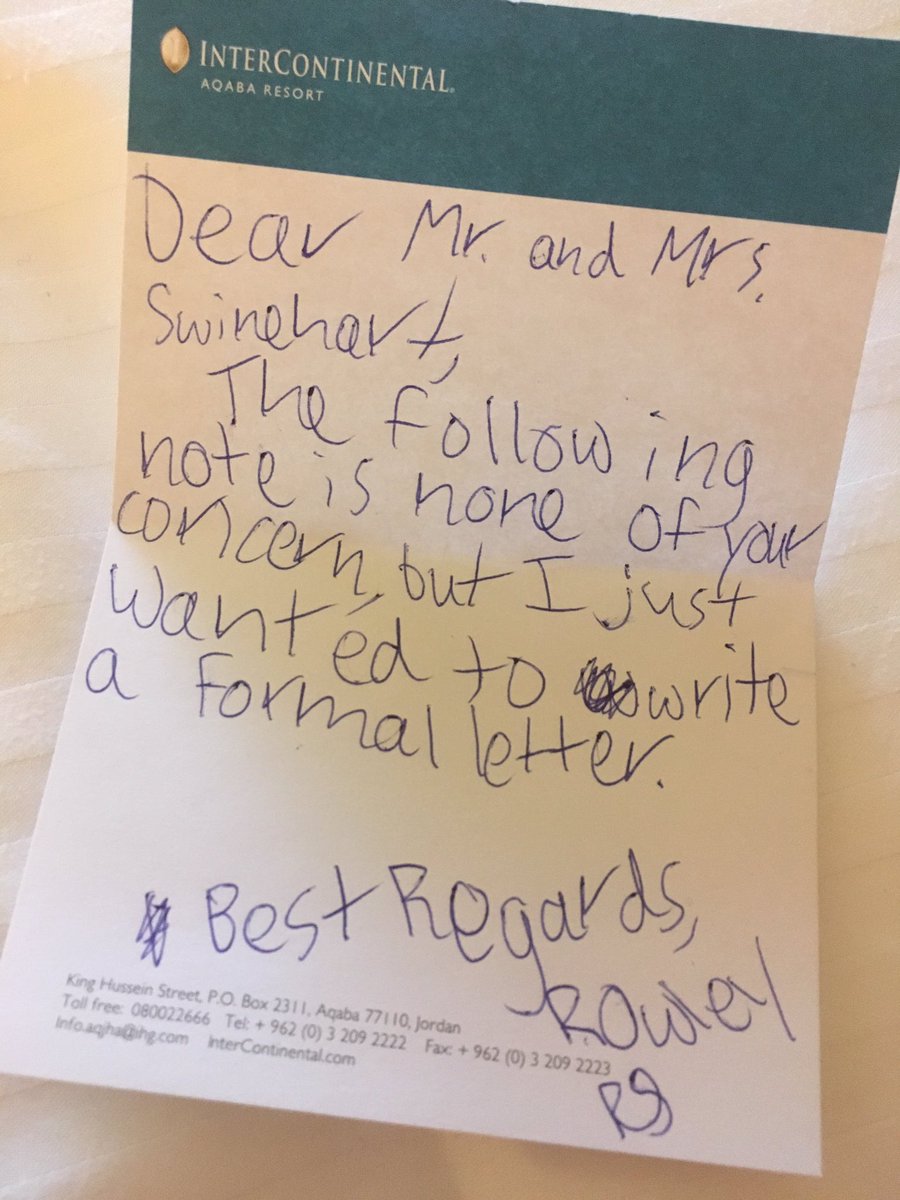 INTERCONTINENTAL®
AQABA RESORT
Dear Mr. and Mrs.
Swinehart,
The following
note is none of your
concern, but I just
wanted to write
a formal letter.
Best Regards,
Rowley
RS
King Hussein Street, P.O. Box 2311, Aqaba 77110, Jordan
Toll free: 080022666 Tel: + 962 (0) 3 209 2222 Fax: + 962 (0) 3 209 2223
Info.aqjha@ihg.com InterContinental.com